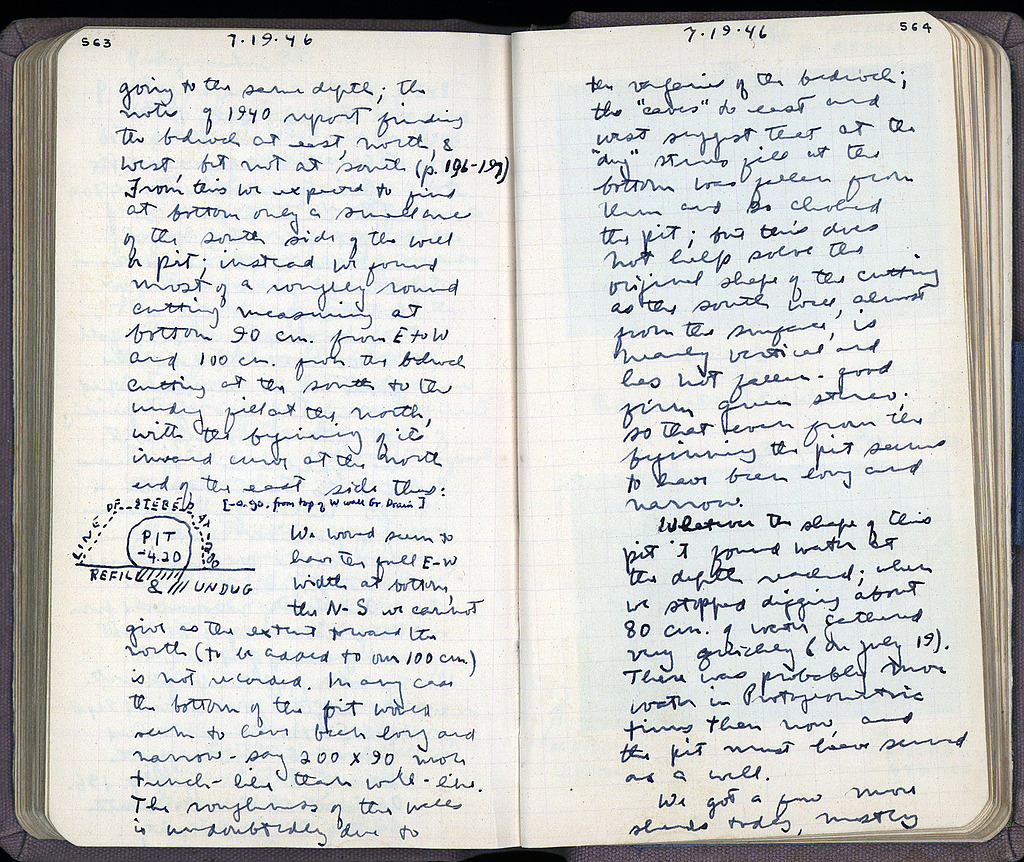 563
7·19·46
going to the same depth; the
note of 1940 report finding
the bedrock at east, north, &
west, but not at south (p. 196-197)
From this we expected to find
at bottom only a small arc
of the south side of the well
or pit; instead we found
most of a roughly round
cutting measuring at
bottom 90 cm. from E to W
and 100 cm. from the bedrock
cutting at the south to the
undug fill at the north,
with the beginning of its
inward curve at the north
end of the east side thus:
[-0.90. from top of W wall Gr. Drain]
LINE OF STEREO AROUND
PIT
-4.20
REFILL & UNDUG
We would seem to
have the full E-W
width at bottom,
the N-S we cannot
give as the extent toward the
north (to be added to our 100 cm.)
is not recorded. In any case
the bottom of the pit would
seem to have been long and
narrow - say 200 x 90 more
trench-like than well-like.
The roughness of the walls
is undoubtedly due to
7·19·46
564
the vagaries of the bedrock;
the "caves" to east and
west suggest that at the
"dug" stereo fill at the
bottom was fallen from
them and so choked
the pit; but this does
not help solve the
original shape of the cutting
as the south wall, almost
from the surface, is
nearly vertical and
has not fallen - good
firm green stereo,
so that even from the
beginning the pit seems
to have been long and
narrow.
Whatever the shape of this
pit it found water at
the depth reached; when
we stopped digging about
80 cm. of water gathered
very quickly (on July 19).
There was probably more
water in Protogeometric
times than now, and
the pit must have served
as a well.
We got a few more
sherds today, mostly